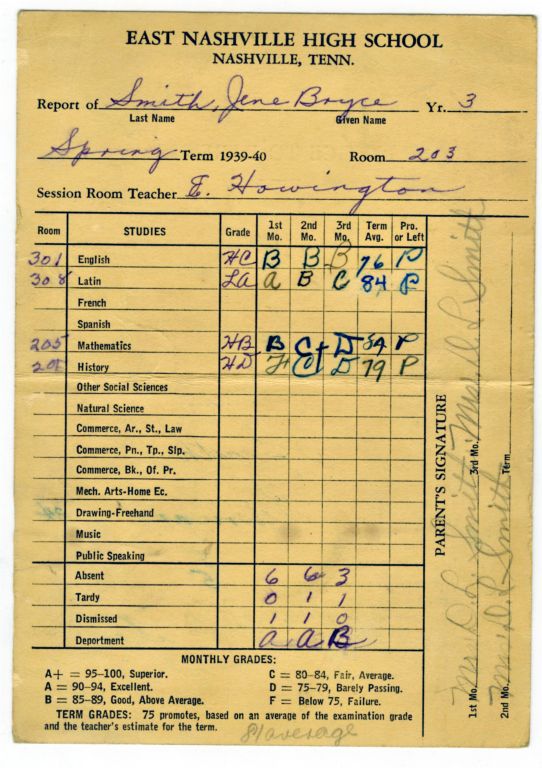 EAST NASHVILLE HIGH SCHOOL
NASHVILLE, TENN.
Report of Smith, Jene Bryce Yr. 3
Last Name Given Name
Spring Term 1939-40 Room 203
Session Room Teacher E. Howington
Room STUDIES Grade 1st Mo. 2nd Mo. 3rd Mo. Term Avg. Pro. or Left
301 English HC B B B 76 P
308 Latin LA A B C 84 P
French
Spanish
205 Mathematics HB B C+ D 84 P
History HD F C D 79 P
Other Social Sciences
Natural Science
Commerce, Ar., St., Law
Commerce, Pn., Tp., Slp.
Commerce, Bk., Of. Pr.
Mech. Arts-Home Ec.
Drawing-Freehand
Music
Public Speaking
Absent 6 6 3
Tardy 0 1 1
Dismissed 1 1 0
Deportment A A B
MONTHLY GRADES:
A+ = 95-100, Superior. C = 80-84, Fair, Average.
A = 90-94, Excellent. D = 75-79, Barely Passing.
B = 85-89, Good, Above Average. F = Below 75, Failure.
TERM GRADES: 75 promotes, based on an average of the examination grade
and the teacher's estimate for the term.
81 average
PARENT'S SIGNATURE
1st Mo. Mrs. D. L. Smith 3rd Mo. Mrs. D. L. Smith
2nd Mo. Mrs. D. L. Smith Term